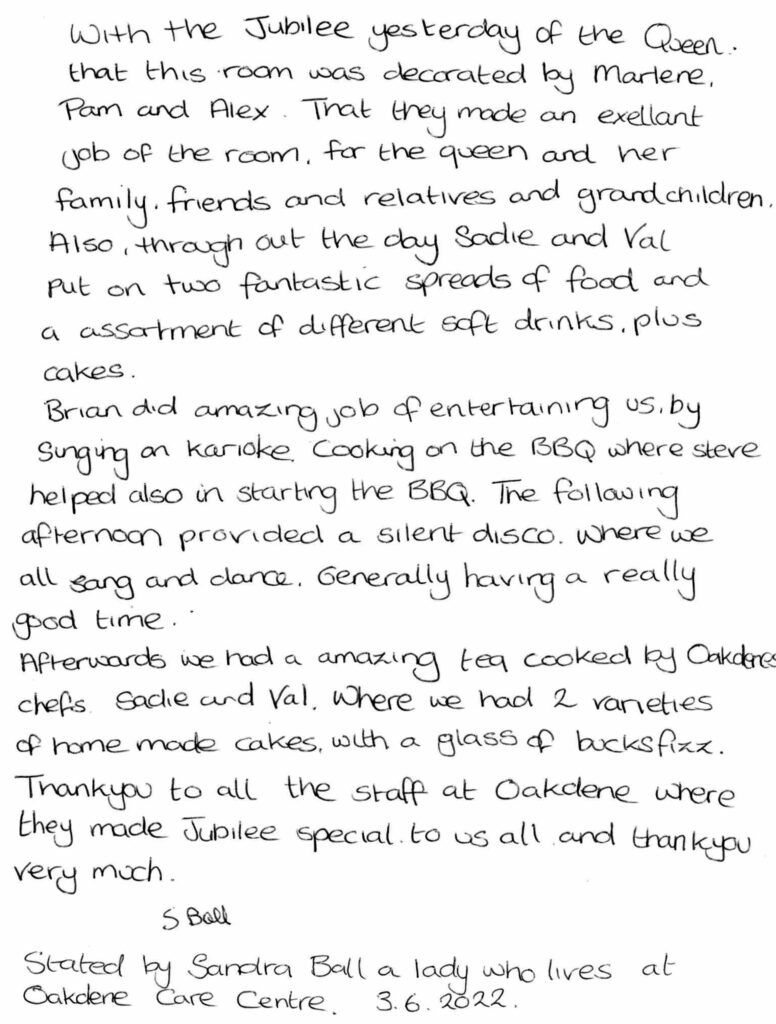 With the Jubilee yesterday of the Queen.
that this room was decorated by Marlene,
Pam and Alex. That they made an exellant
job of the room, for the queen and her
family, friends and relatives and grandchildren.
Also, through out the day Sadie and Val
put on two fantastic spreads of food and
a assortment of different soft drinks, plus
cakes.
Brian did amazing job of entertaining us, by
Singing on Karioke. Cooking on the BBQ where steve
helped also in starting the BBQ. The following
afternoon provided a silent disco. Where we
all sang and dance. Generally having a really
good time.
Afterwards we had a amazing tea cooked by Oakdenes
chefs Sadie and Val. Where we had 2 varieties
of home made cakes, with a glass of bucksfizz.
Thankyou to all the staff at Oakdene where
they made Jubilee special to us all and thankyou
very much.
S Ball
Stated by Sandra Ball a lady who lives at
Oakdene Care Centre. 3.6.2022.